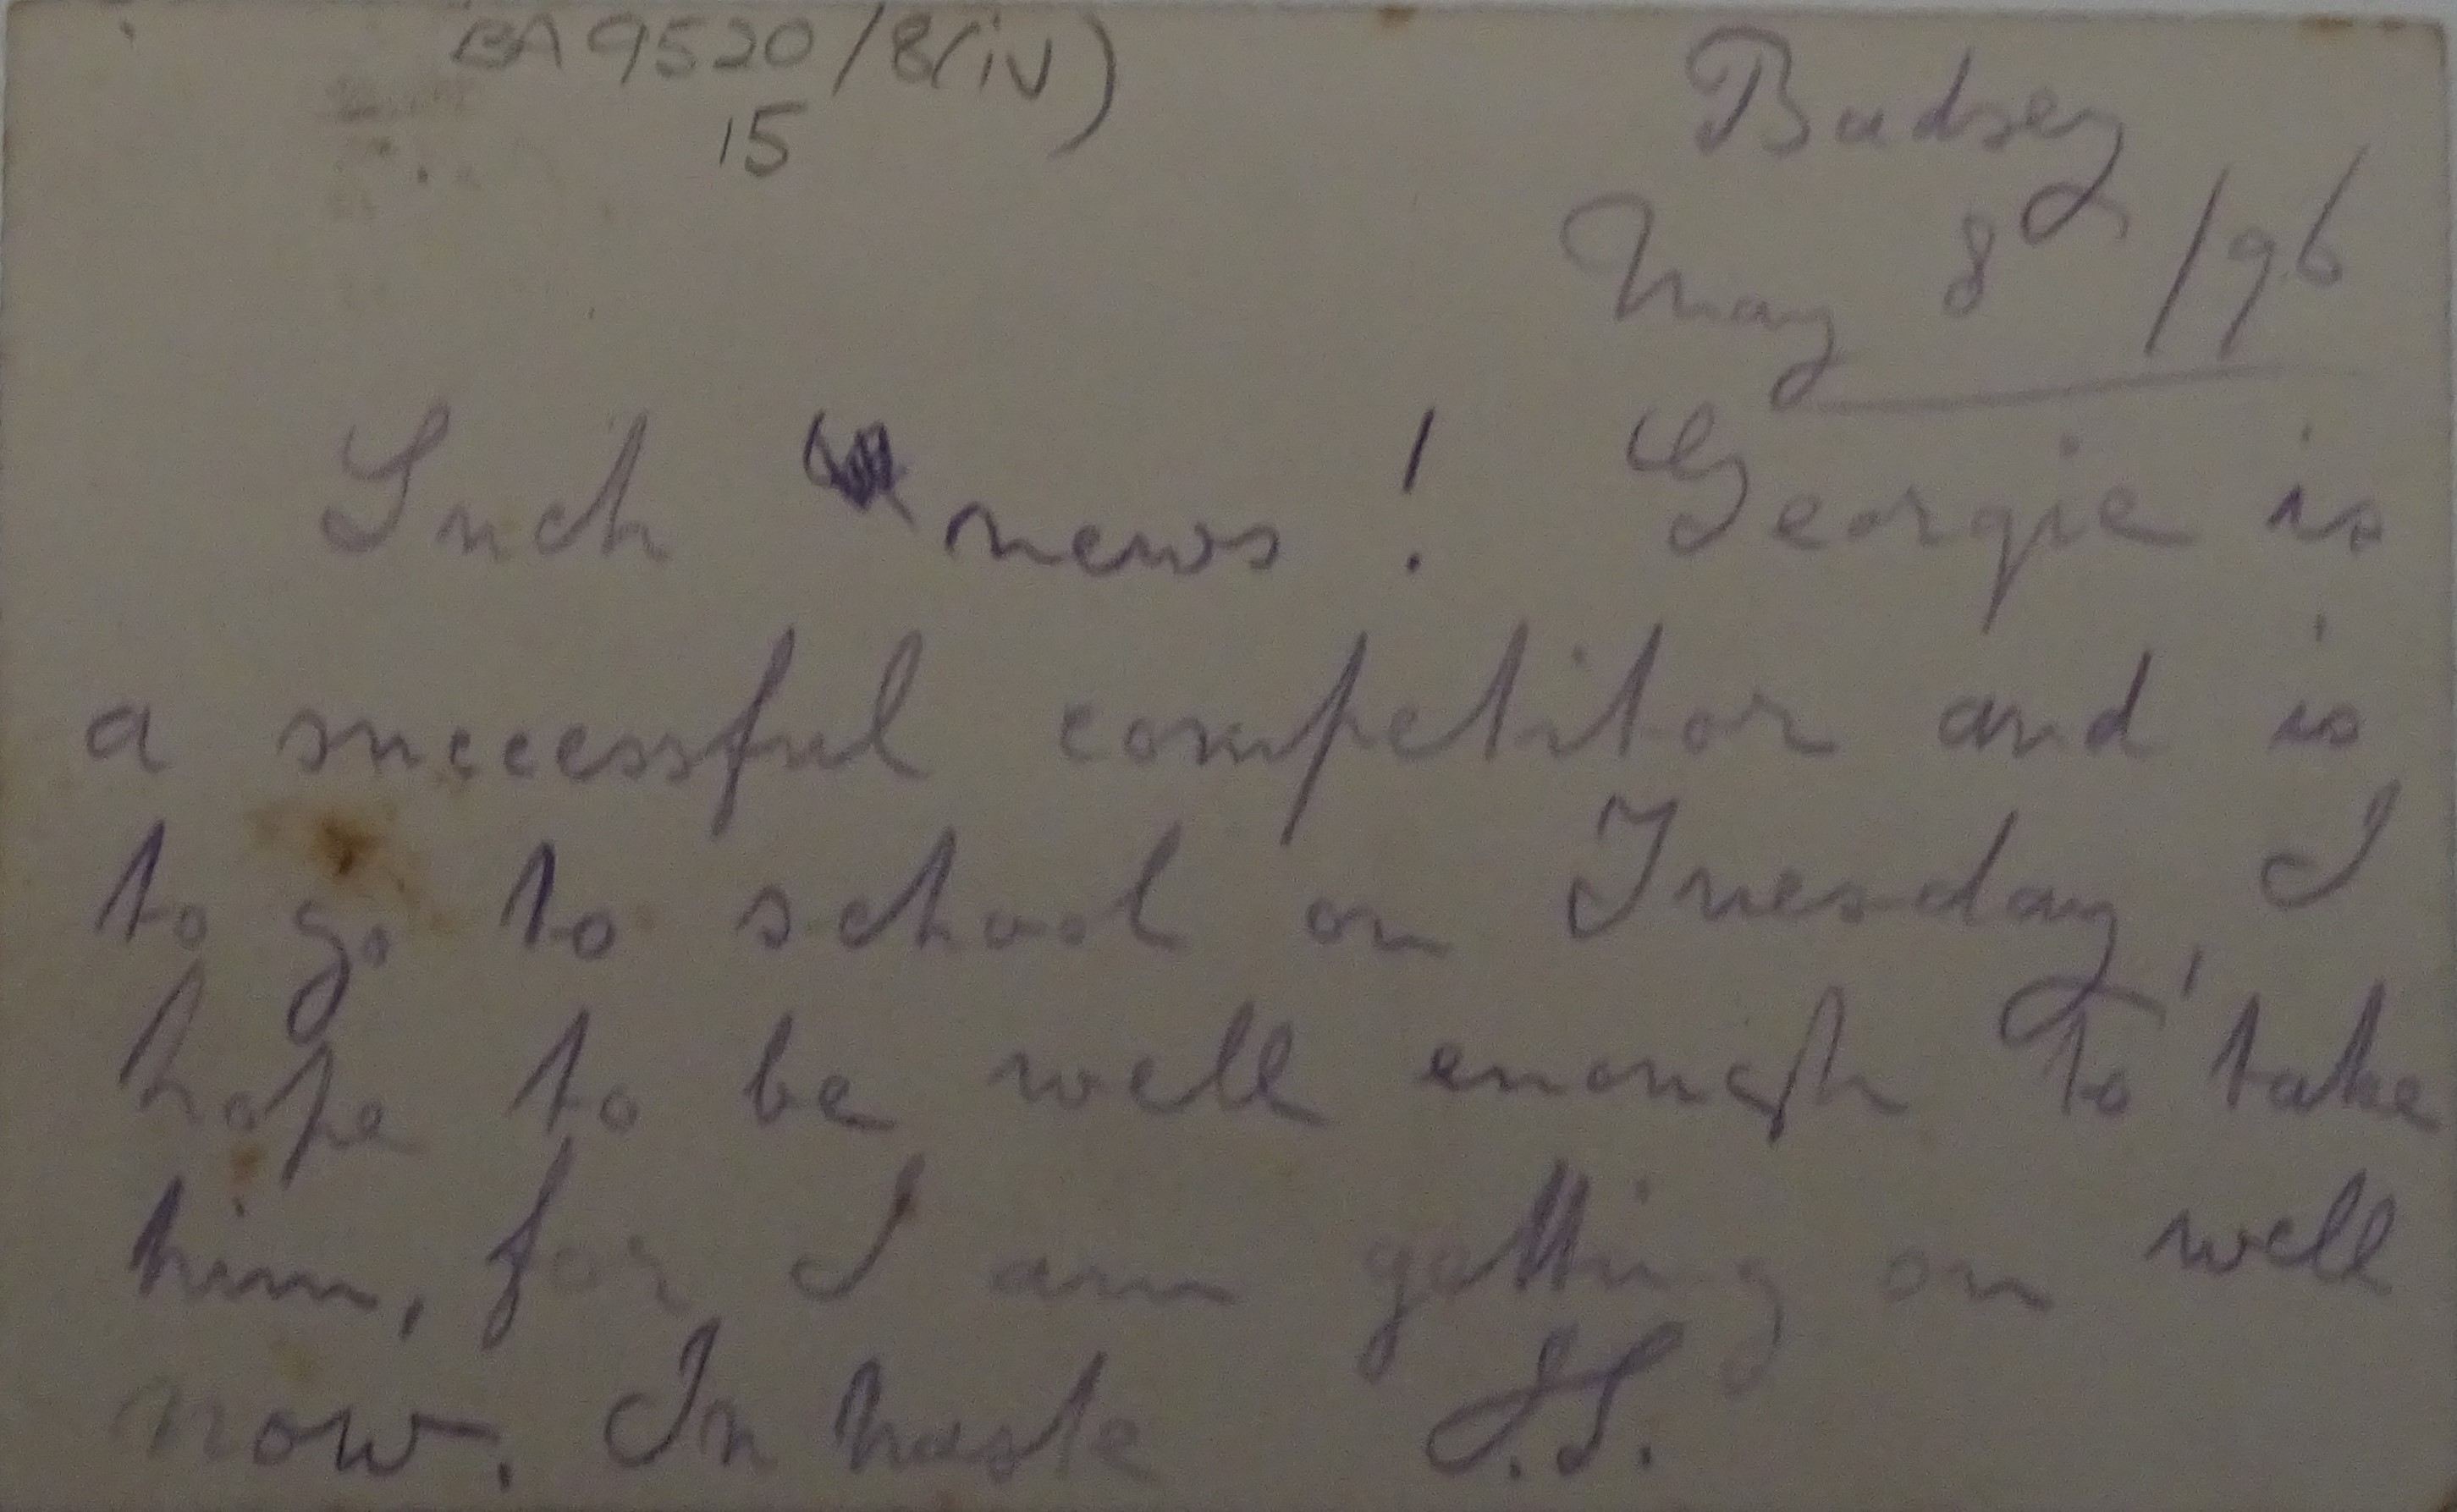 BA 9520/8(iv)
15
Badsey
May 8 /96
Such news! Georgie is
a successful competitor and is
to go to school on Tuesday, I
hope to be well enough to take
him, for I am getting on well
now. In haste J.S.